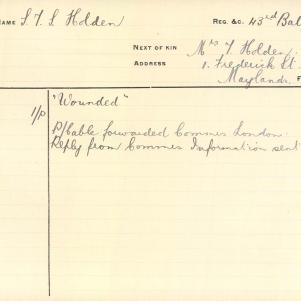 NAME S T S Holden REG. &C. 43rd Bat
NEXT OF KIN Mrs T Holden
ADDRESS 1. Frederick St
Maylands.
"Wounded"
1/P P/Cable forwarded Commes London.
Reply from Commes Information sent